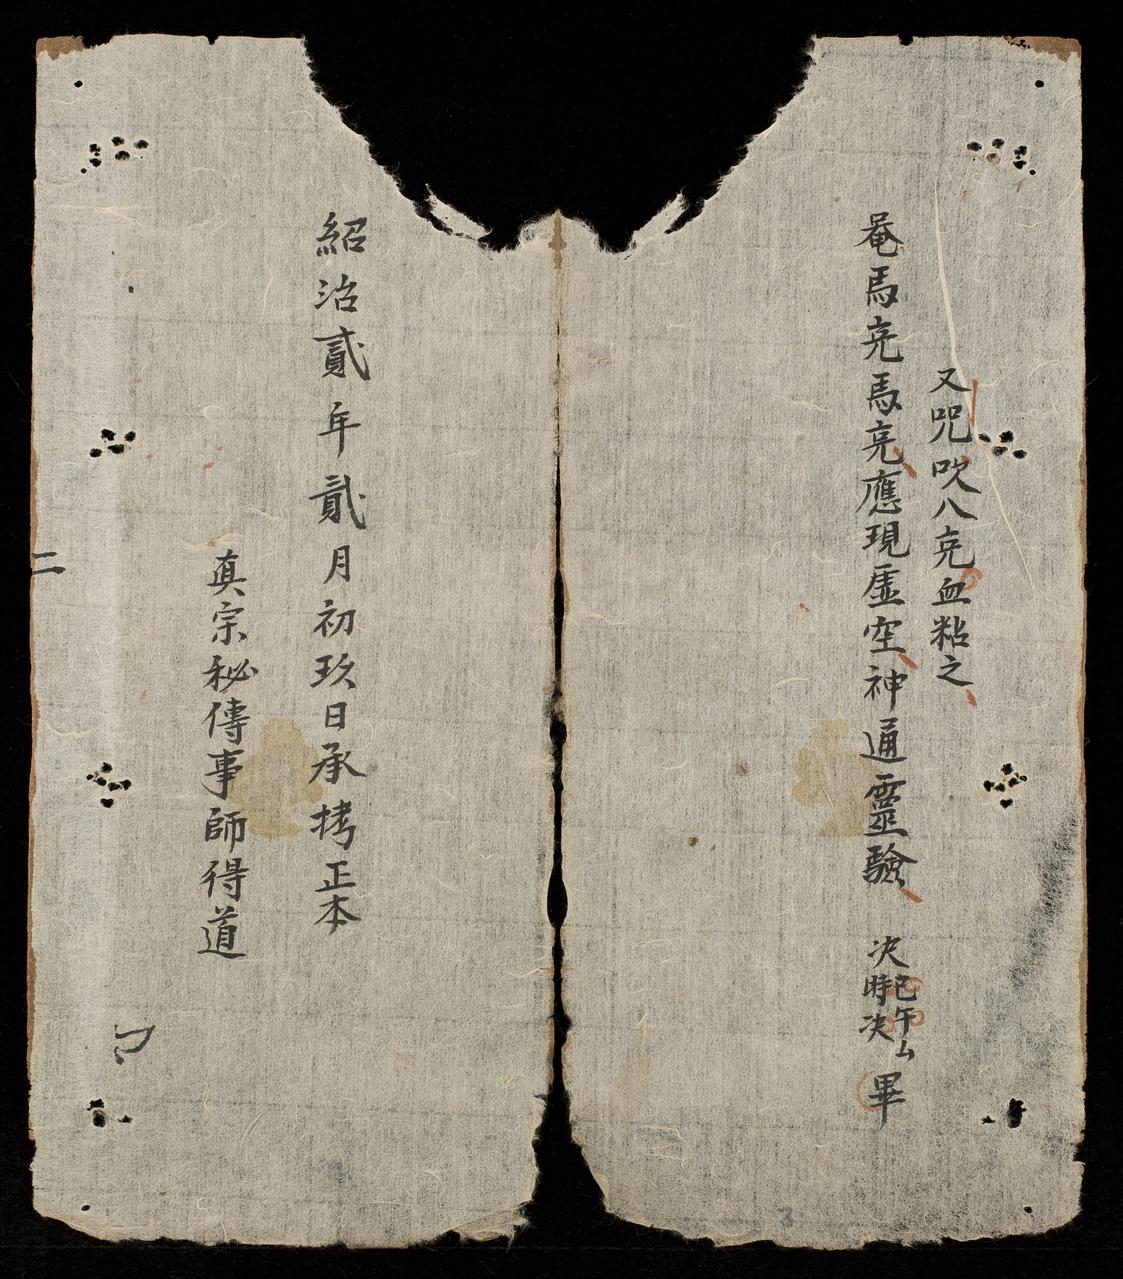 又咒吹八亮血粘之
菴馬亮馬亮應現虛空神通靈驗 决 巳午厶時决 畢
紹治貳年貳月初玖日承拷正本
真宗秘傳事師得道
二